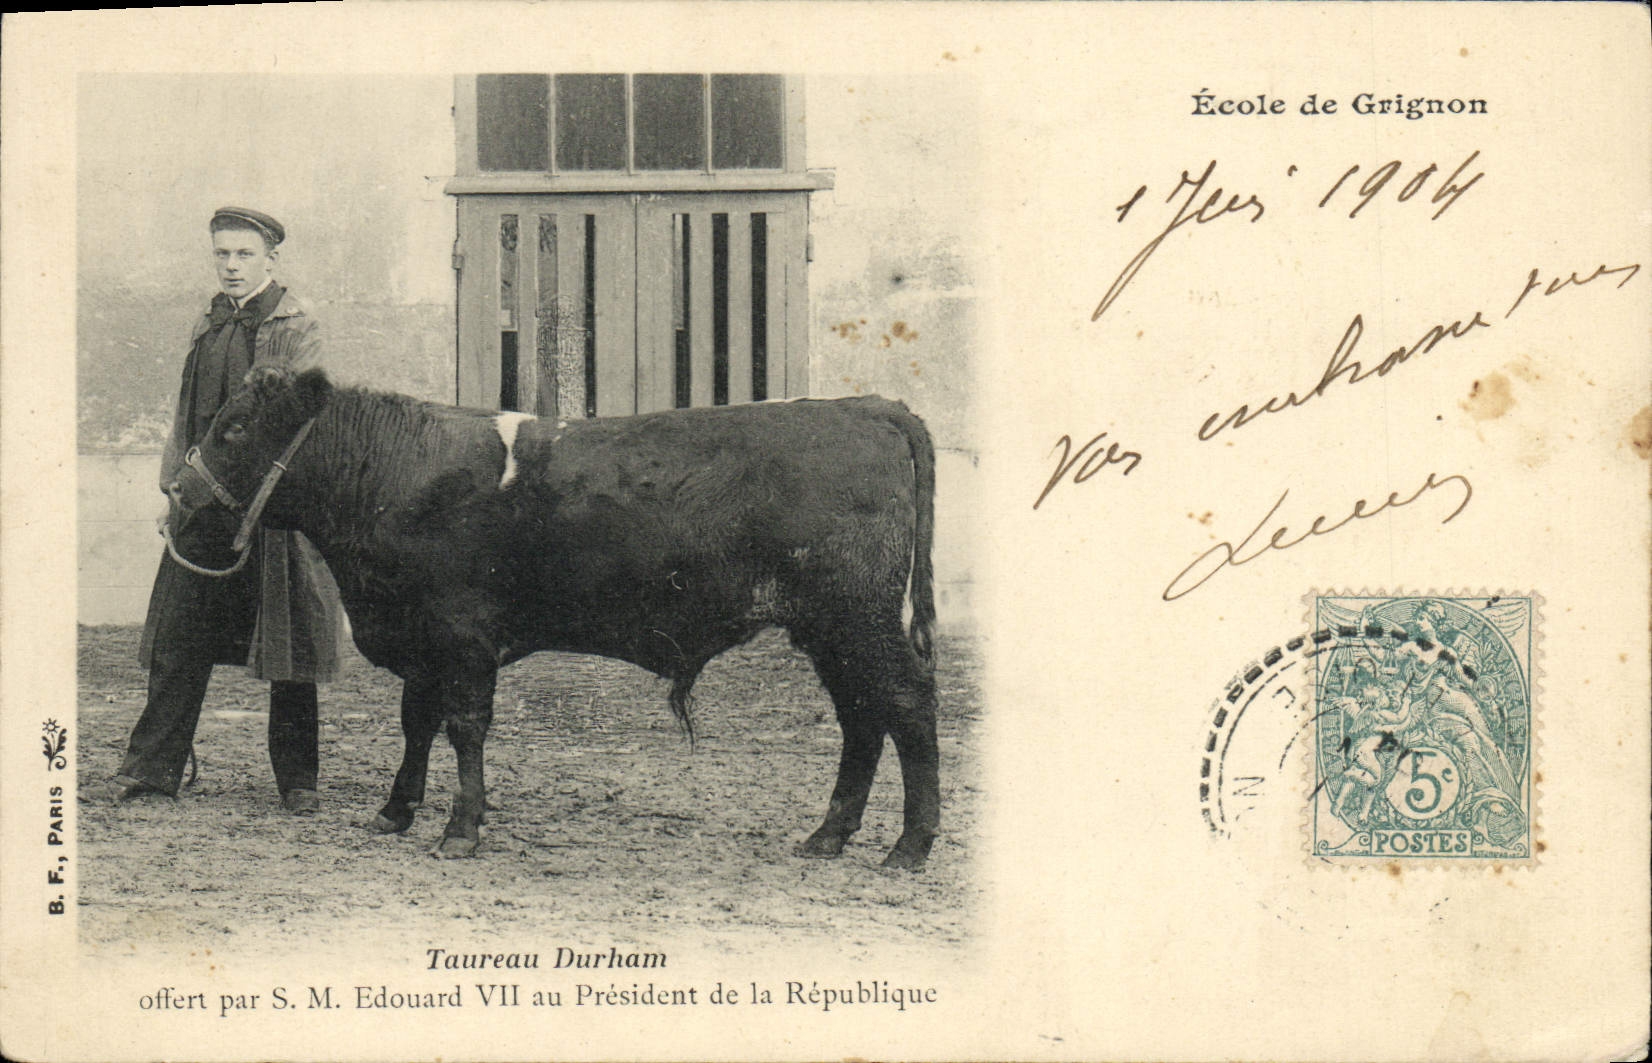 École de Grignon
1 Juin 1904
Vos embrasse tous
B. F., PARIS
5c
POSTES
Taureau Durham
offert par S. M. Edouard VII au Président de la République